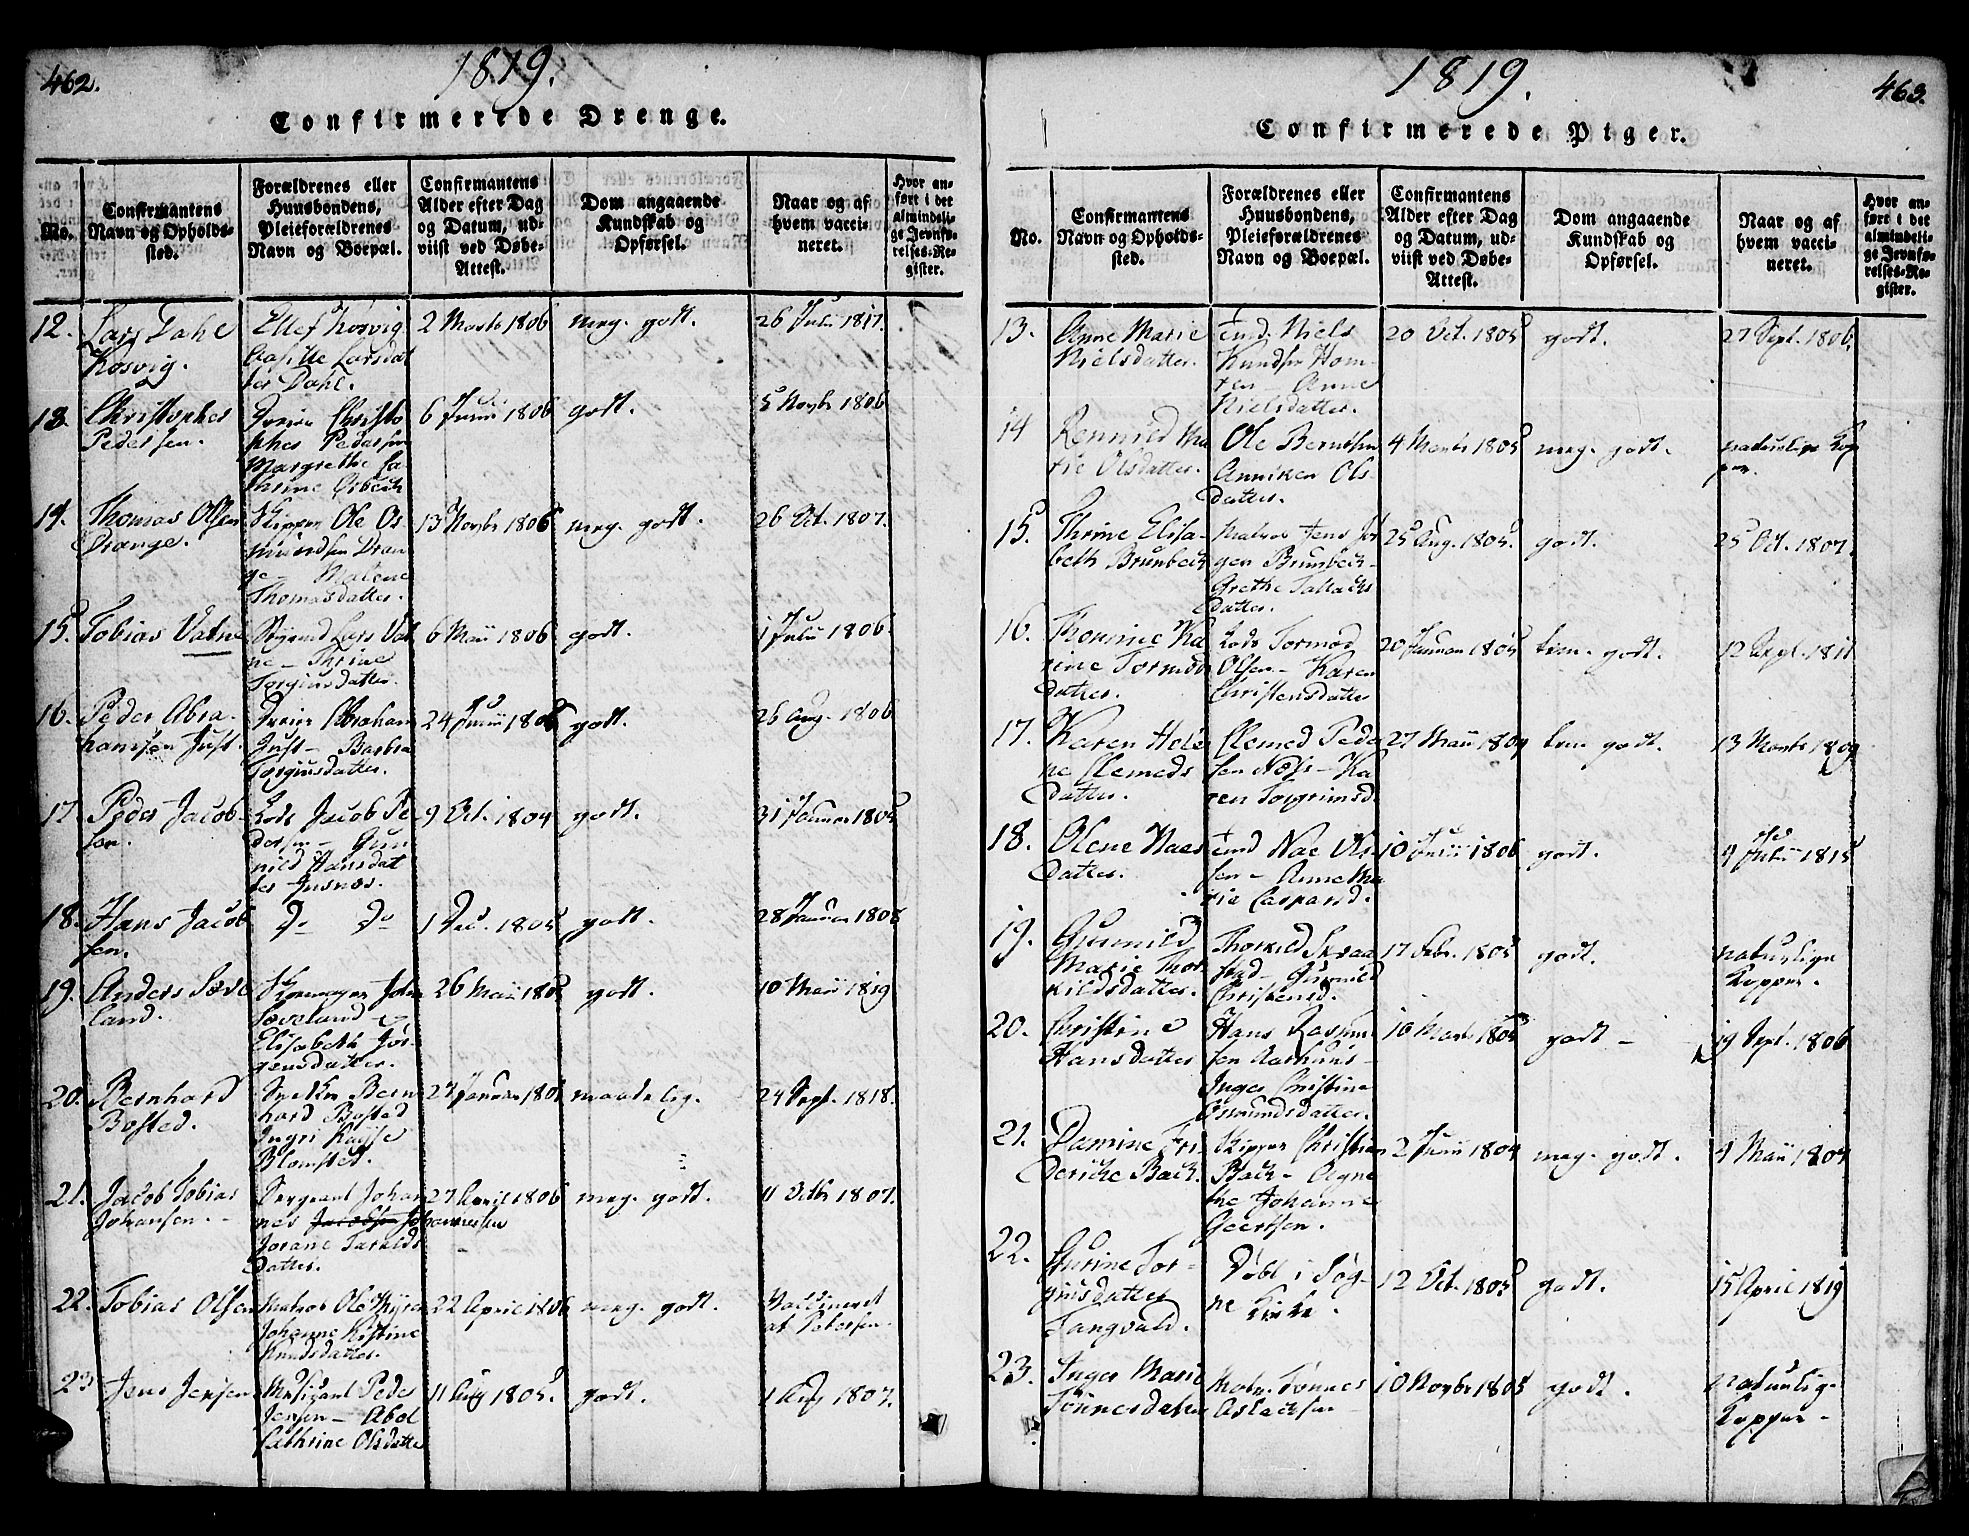 462.
1819.
Confirmerede Drenge.
No.
Confirmantens
Navn og Opholds-
sted.
Forældrenes eller
Huusbondens,
Pleieforældrenes
Navn og Boepæl.
Confirmantens
Alder efter Dag
og Datum, ud-
viist ved Døbe-
Attest.
Dom angaaende
Kundskab og
Opførsel.
Naar og af
hvem vacci-
neret.
Hvor an-
ført i det
almindeli-
ge Jevnfø-
relses-Re-
gister.
12. Lars Dahl
Kosvig.
Ellef Kosvig
Larsdat
ter Dahl.
2 Martz 1806
meg. godt.
26 Juli 1817.
13. Christopher
Pedersen.
Christo
pher Pedersen
Margrethe Ca
thrine
6 Junii 1806
godt.
5 Novbr 1806
14. Thomas Olsen
Drange.
Skipper Ole Os
mundsen Dran
ge - Malene
Thomasdatter.
13 Novbr 1806
meg. godt.
26 Oct. 1807.
15. Tobias Vatne
Styrmd Lars Vat
ne - Thrine
Torgiusdatter.
6 Maii 1806
godt.
1 Julii 1806.
16. Peder Abra-
hamsen Just.
Abraham
Just - Barbra
Torgiusdatter.
24 Junii 1806
godt.
26 Aug. 1806
17. Peder Jacob-
sen.
Lods Jacob Pe-
dersen - Gun
nild Hansdat
ter
9 Oct. 1804
godt.
31 Januar 1805
18. Hans Jacob
sen.
Do Do
1 Dec. 1805
godt.
28 Januar 1808
19. Anders Sæve
land.
John
Sæveland -
Elisabeth Jør-
gensdatter.
26 Maii 1805
godt.
10 Maii 1819
20. Bernhard
Bosted.
Bern
hard Bosted
Ingri
Blomsted.
23 Januar 180
maadelig.
24 Sept. 1818.
21. Jacob Tobias
Johansen.
Sergeant Johan
nes Jacobsen Johannessen
Jorane Taralds
datter.
27 April 1806
meg. godt.
11 Octbr 1807.
22. Tobias Olsen
Matros Ole
Johanne Kistine
Knudsdatter.
22 April 1806
meg. godt.
Vaccineret
af Petersen.
23 Jens Jensen
Musicant Peder
Jensen - Abel
Cathrine Olsdatter
11 Aug 1805.
godt.
1 Aug 1807.
463.
1819.
Confirmerede Piger.
No.
Confirmantens
Navn og Opholds-
sted.
Forældrenes eller
Huusbondens,
Pleieforældrenes
Navn og Boepæl.
Confirmantens
Alder efter Dag
og Datum, ud-
viist ved Døbe-
Attest.
Dom angaaende
Kundskab og
Opførsel.
Naar og af
hvem vacci-
neret.
Hvor an-
ført i det
almindeli-
ge Jevnfø-
relses-Re-
gister.
13. Anne Marie
Nielsdatter.
Niels
Knudsen Hom-
Anne
Nielsdatter.
20 Oct. 1805
godt.
27 Sept. 1806.
14 Rennild Ma
rie Olsdatter.
Ole Berntsen
Anniken Ols
datter.
4 Martz 1805
meg. godt.
naturlige Kop
per.
15. Thrine Elisa-
beth Brunbech
Matros Jens Jør
gen Brunbech -
Grethe Tallachs
datter.
25 Aug. 1805.
godt.
25 Oct. 1807.
16. Thomine Ka
rine Tormods
datter.
Lods Tormod
Olsen - Karen
Christensdatter
20 Januar 1805
tem. godt.
12 Sept. 1811
17. Karen Hele
ne Clemeds
datter.
Clemed Peder
sen Næss - Ka
ren Torgrimsd.
27 Maii 1804
tem godt.
13 Martz 1809
18. Olene Naes
datter.
Nae Ols
sen - Anne Ma
rie Caspersd.
10 Junii 1806
godt.
4 Julii 1815
19. Gunnild
Marie Thor
kildsdatter.
Thorkild Skraa
stad - Gunnild
Christensd.
17 Febr. 1805
godt.
naturlige
Kopper.
20. Christine
Hansdatter
Hans Rasmus
sen Aarhuus -
Inger Christine
Osmundsdatter.
16 Martz 1805
godt -
19 Sept. 1806
21. Damine Fri
deriche Bach.
Skipper Christian
Bach - Agne
the Johanne
Geertsen.
2 Junii 1804
meg. godt.
4 Maii 1807
22. Gurine Tor-
giusdatter
Tangvald.
Døbt i Søg-
ne Kirke.
12 Oct. 1805
godt.
15 April 1819
23. Inger Marie
Tønnesdatter
Matr. Tønnes
Aslachsen
10 Novbr 1805
godt.
naturlig-
Kopper -